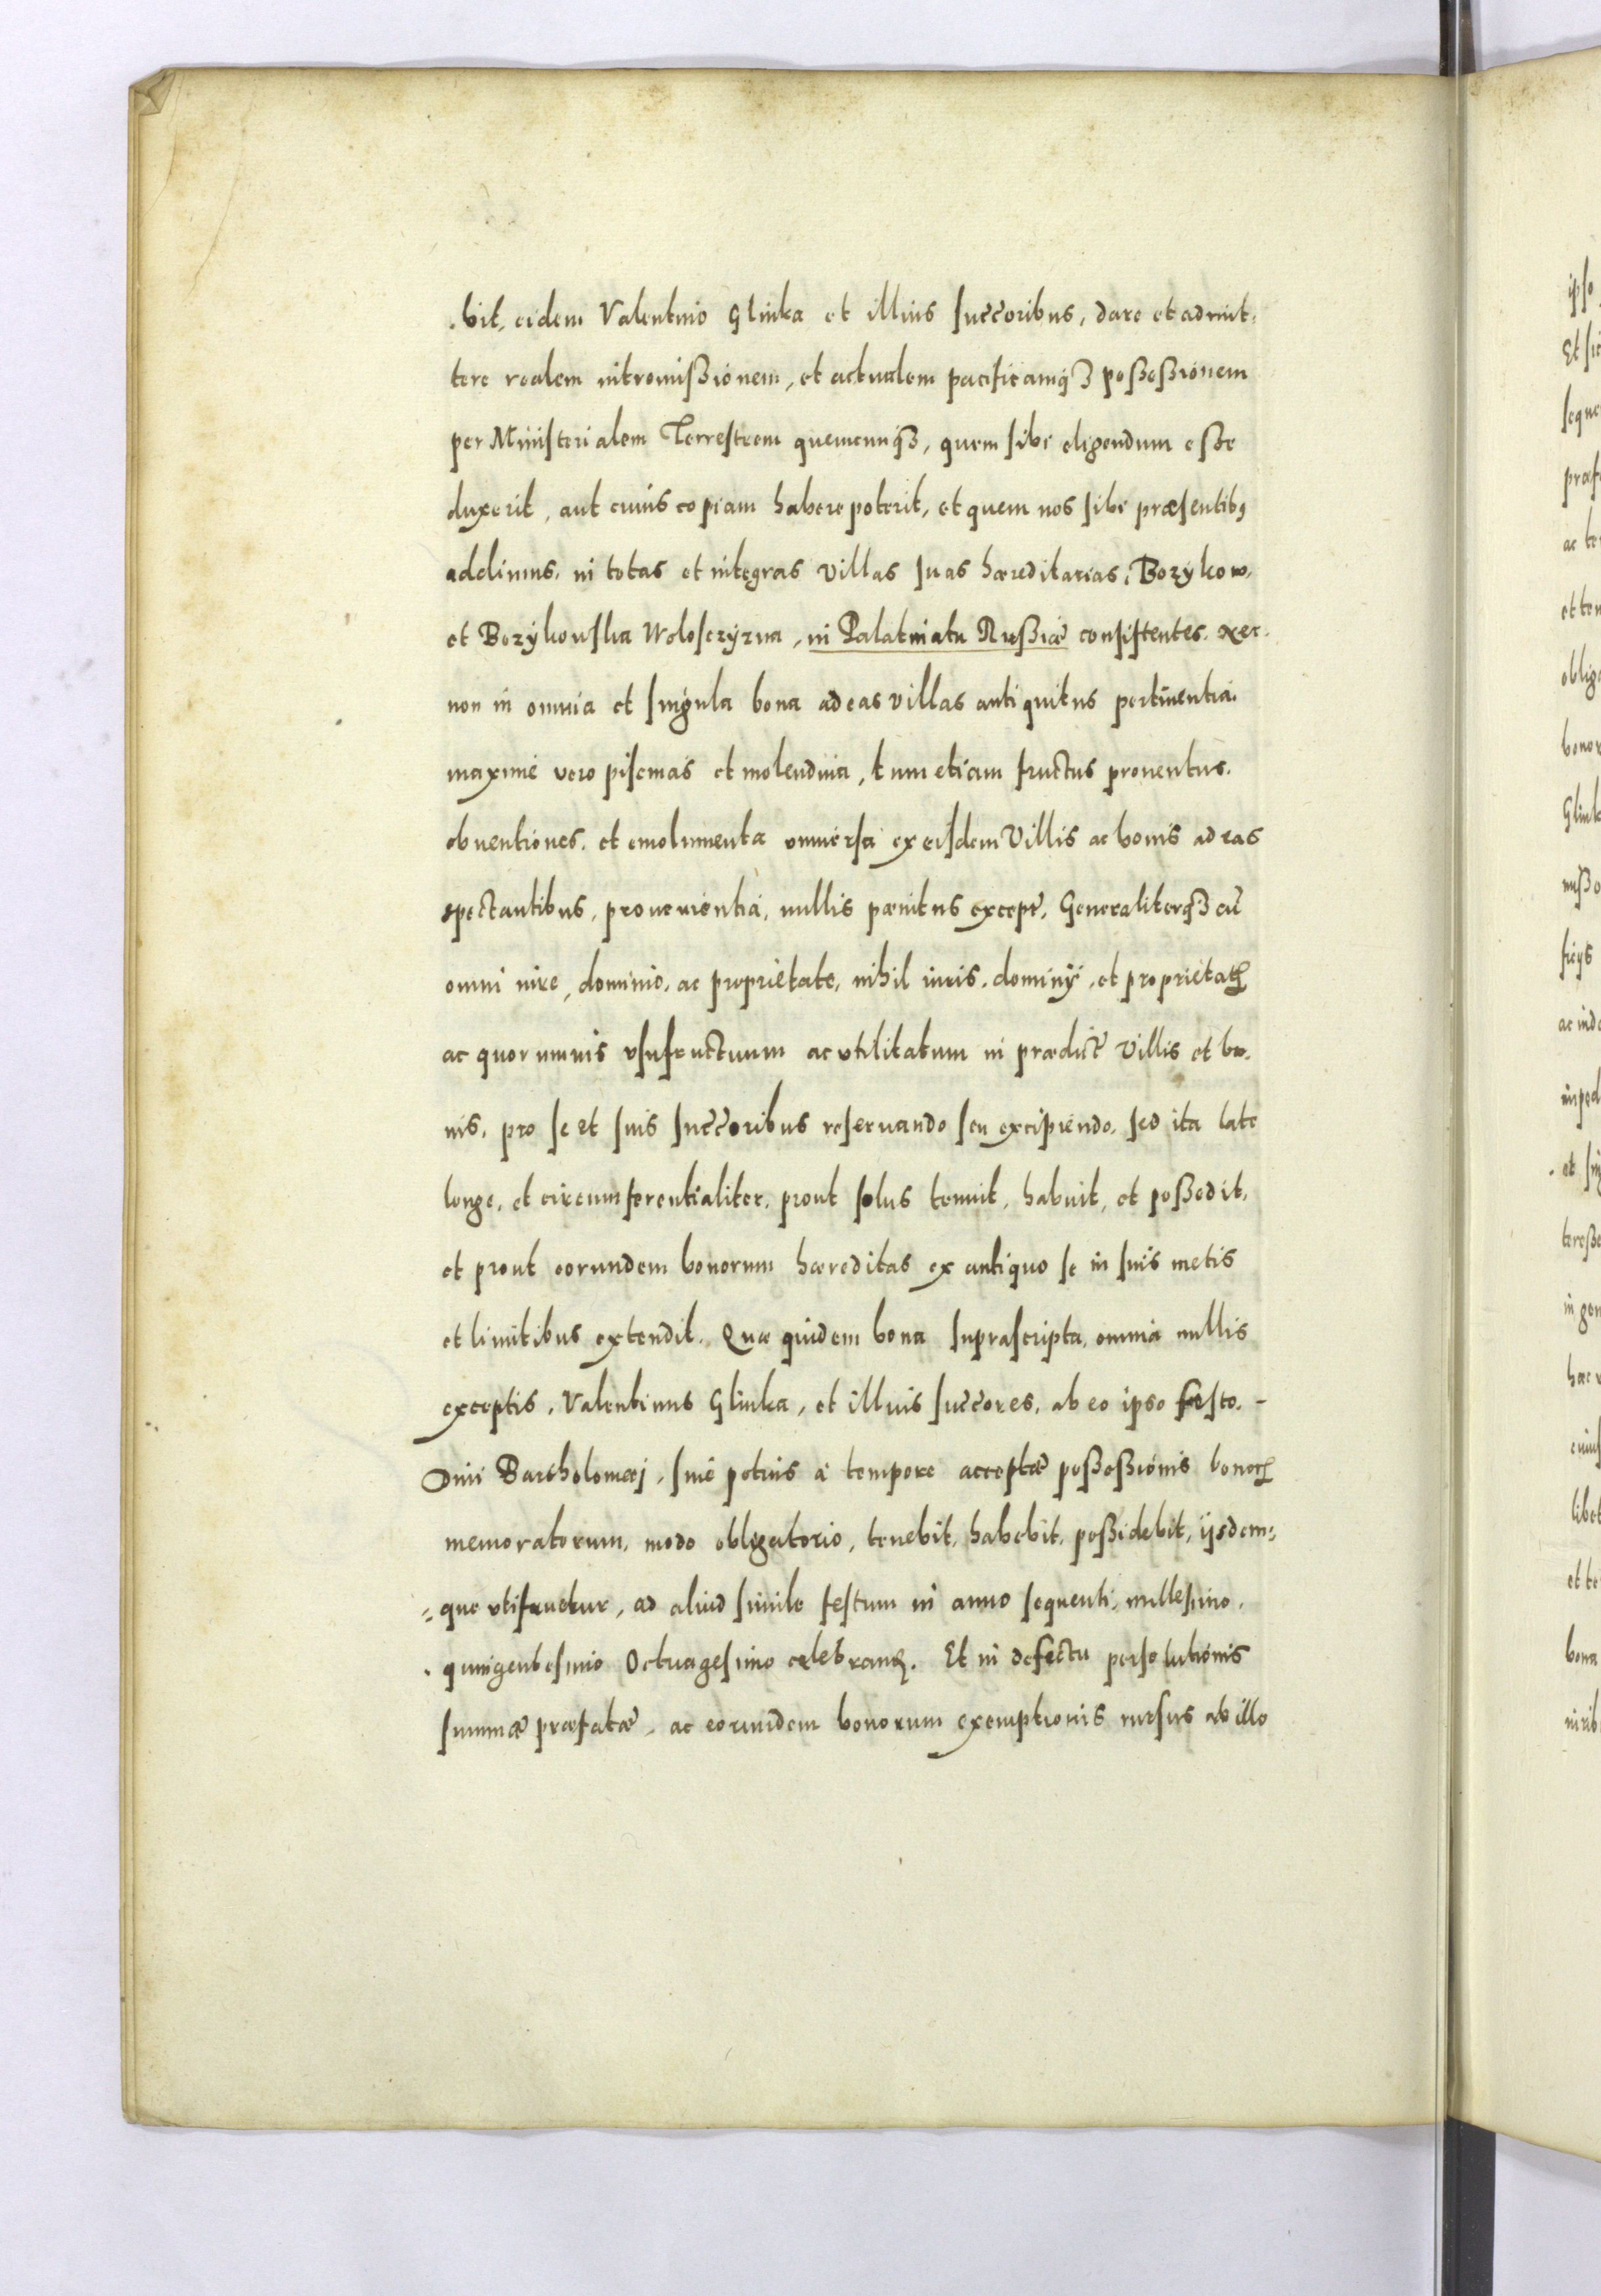 .bit, eidem Valentino Glinka et illius succoribus, dare et admit,
tere realem intromißionem, et actualem pacificamq₃ poßeßionem
per Ministerialem Terrestrem quemcunq₃, quem sibi eligendum eße
duxerit, aut cuius copiam habere poterit, et quem nos sibi præsentibꝰ
addimus, in totas et integras villas suas hæreditarias, Bozykow,
et Bozykowska Wolosczyzna, in Palatinatu Rußiæ consistentes. nec.
non in omnia et singula bona ad eas villas antiquitus pertinentia.
maxime vero piscinas et molendina, tum etiam fructus prouentus.
obuentiones. et emolumenta vniuersa ex eisdem Villis ac bonis ad eas
spectantibus, prouenientia, nullis pænitus except̃, Generaliterq₃ cũ
omni iure, dominio, ac proprietate, nihil iuris, dominij, et proprietatꝭ
ac quorumuis vsufructuum ac vtilitatum in prædict̃ Villis et bo.
nis, pro se et suis succoribus reseruando seu excipiendo, sed ita late
longe, et circumferentialiter, prout solus tenuit, habuit, et poßedit,
et prout eorundem bonorum hæreditas ex antiquo se in suis metis
et limitibus extendit. Quæ quidem bona suprascripta, omnia nullis
exceptis, Valentinus Glinka, et illius succores, ab eo ipso festo. -
Diui Bartholomæi, siue potius à tempore acceptæ poßeßionis bonorꝝ
memoratorum, modo obligatorio, tenebit, habebit, poßidebit, ijsdem=
=que vtifruetur, ad aliud simile festum in anno sequenti, millesimo.
. quingentesimo Octuagesimo celebranꝰ. Et in defectu persolutionis
summæ præfatæ, ac eorundem bonorum exemptionis rursus ab illo